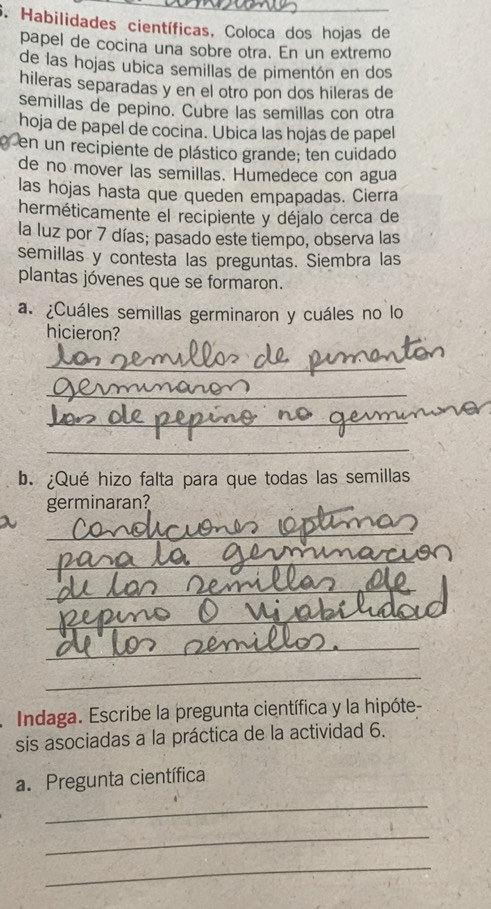 Habilidades científicas. Coloca dos hojas de
papel de cocina una sobre otra. En un extremo
de las hojas ubica semillas de pimentón en dos
hileras separadas y en el otro pon dos hileras de
semillas de pepino. Cubre las semillas con otra
hoja de papel de cocina. Ubica las hojas de papel
en un recipiente de plástico grande; ten cuidado
de no mover las semillas. Humedece con agua
las hojas hasta que queden empapadas. Cierra
herméticamente el recipiente y déjalo cerca de
la luz por 7 días; pasado este tiempo, observa las
semillas y contesta las preguntas. Siembra las
plantas jóvenes que se formaron.
a. ¿Cuáles semillas germinaron y cuáles no lo
hicieron?
las semillas de pimenton
germinaron
las de pepino no germinaron
b. ¿Qué hizo falta para que todas las semillas
germinaran?
condiciones optimas
para la germinacion
de las semillas de
pepino o viabilidad
de las semillas.
Indaga. Escribe la pregunta científica y la hipóte-
sis asociadas a la práctica de la actividad 6.
a. Pregunta científica